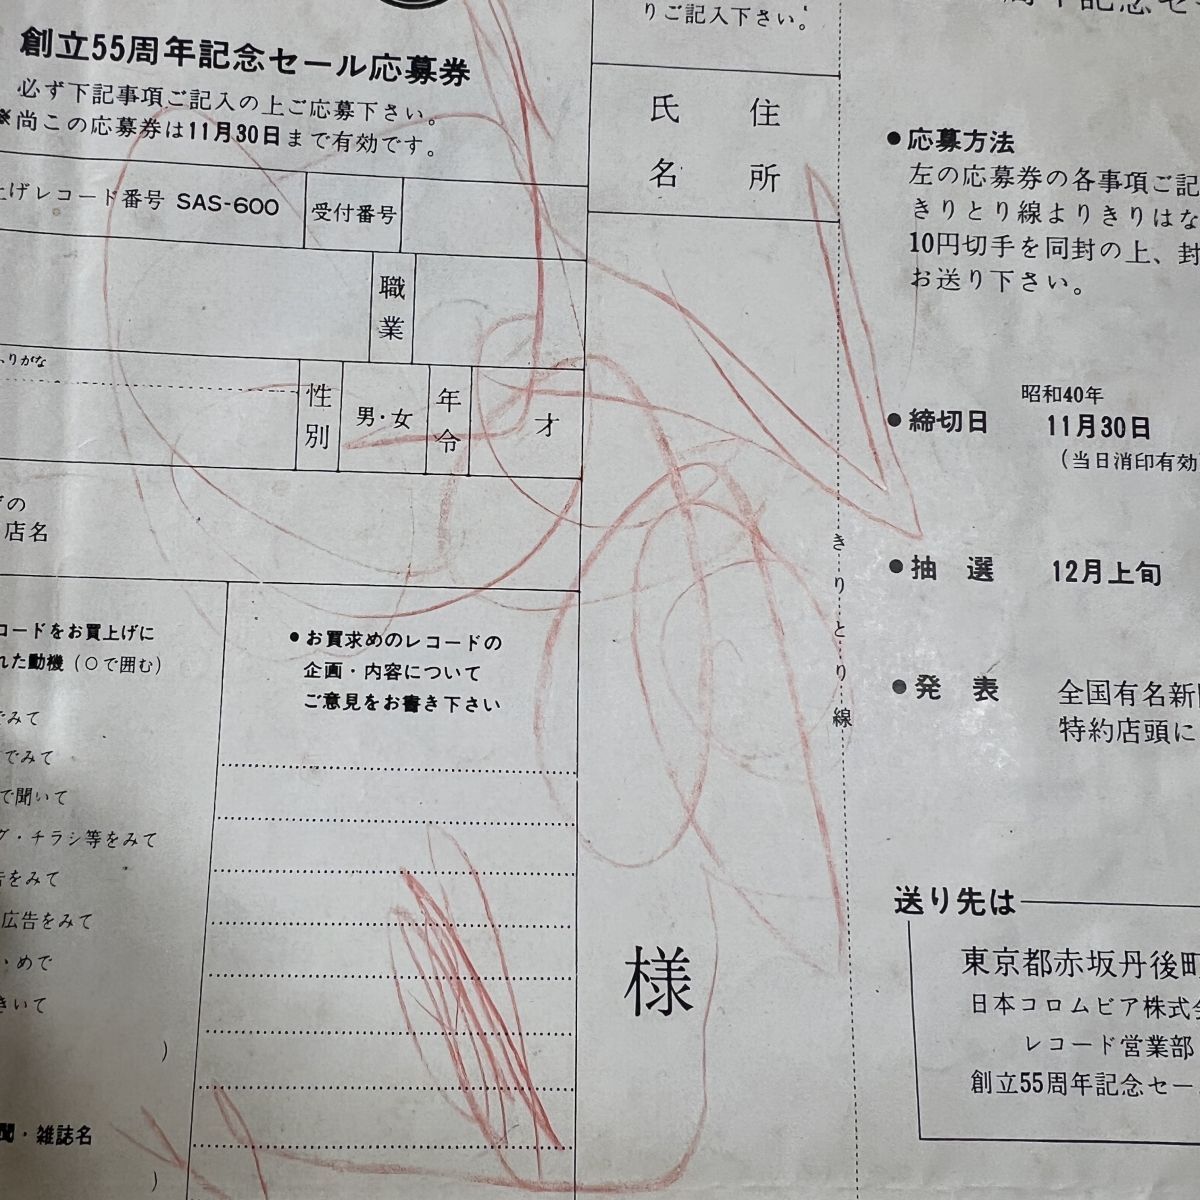 創立55周年記念セール応募券
必ず下記事項ご記入の上ご応募下さい。
※尚この応募券は11月30日まで有効です。
上げレコード番号 SAS-600
受付番号
職業
ふりがな
性別
男・女
年令
才
の
店名
コードをお買上げに
れた動機（○で囲む）
でみて
でみて
で聞いて
グ・チラシ等をみて
告をみて
広告をみて
いめで
きいて
）
聞・雑誌名
）
●お買求めのレコードの
企画・内容について
ご意見をお書き下さい
りご記入下さい。
住所
氏名
様
きりとり線
●応募方法
左の応募券の各事項ご記
きりとり線よりきりはな
10円切手を同封の上、封
お送り下さい。
●締切日
昭和40年
11月30日
（当日消印有効
●抽選 12月上旬
●発表 全国有名新聞
特約店頭に
送り先は
東京都赤坂丹後町
日本コロムビア株式会
レコード営業部
創立55周年記念セー